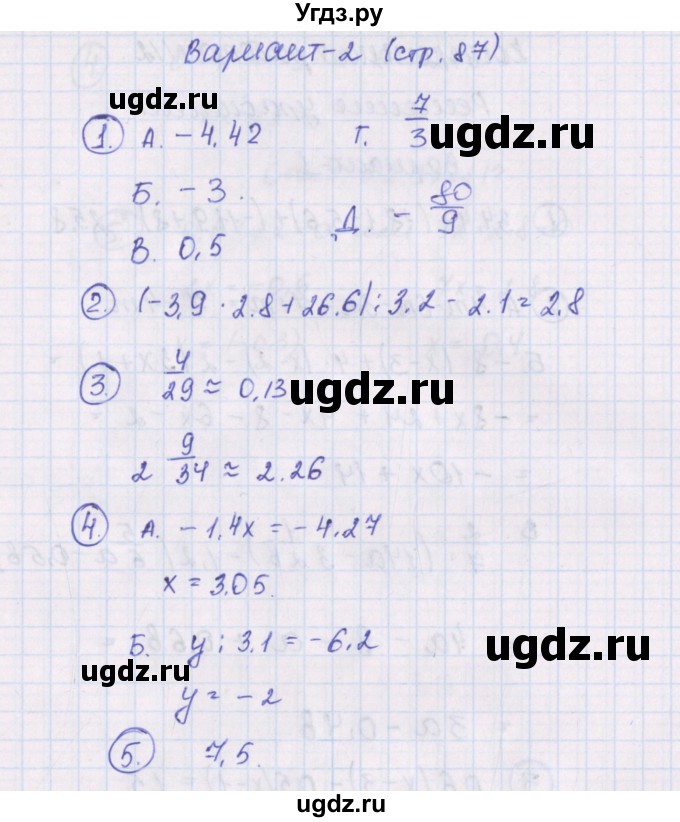 Угдз.ру
Вариант-2 (стр. 87)
ugdz.ru ugdz.ru
1. А. -4,42 Г. 7/3
Б. -3. Д. - 80/9
В. 0,5
2. (-3,9 · 2.8 + 26.6) : 3.2 - 2.1 = 2,8
3. 4/29 ≈ 0,13
ugdz.ru ugdz.ru
2 9/34 ≈ 2.26
4. А. -1,4x = -4.27
x = 3.05.
Б. y : 3.1 = -6.2
ugdz.ru ugdz.ru
y = -2
5. 7,5.
ugdz.ru